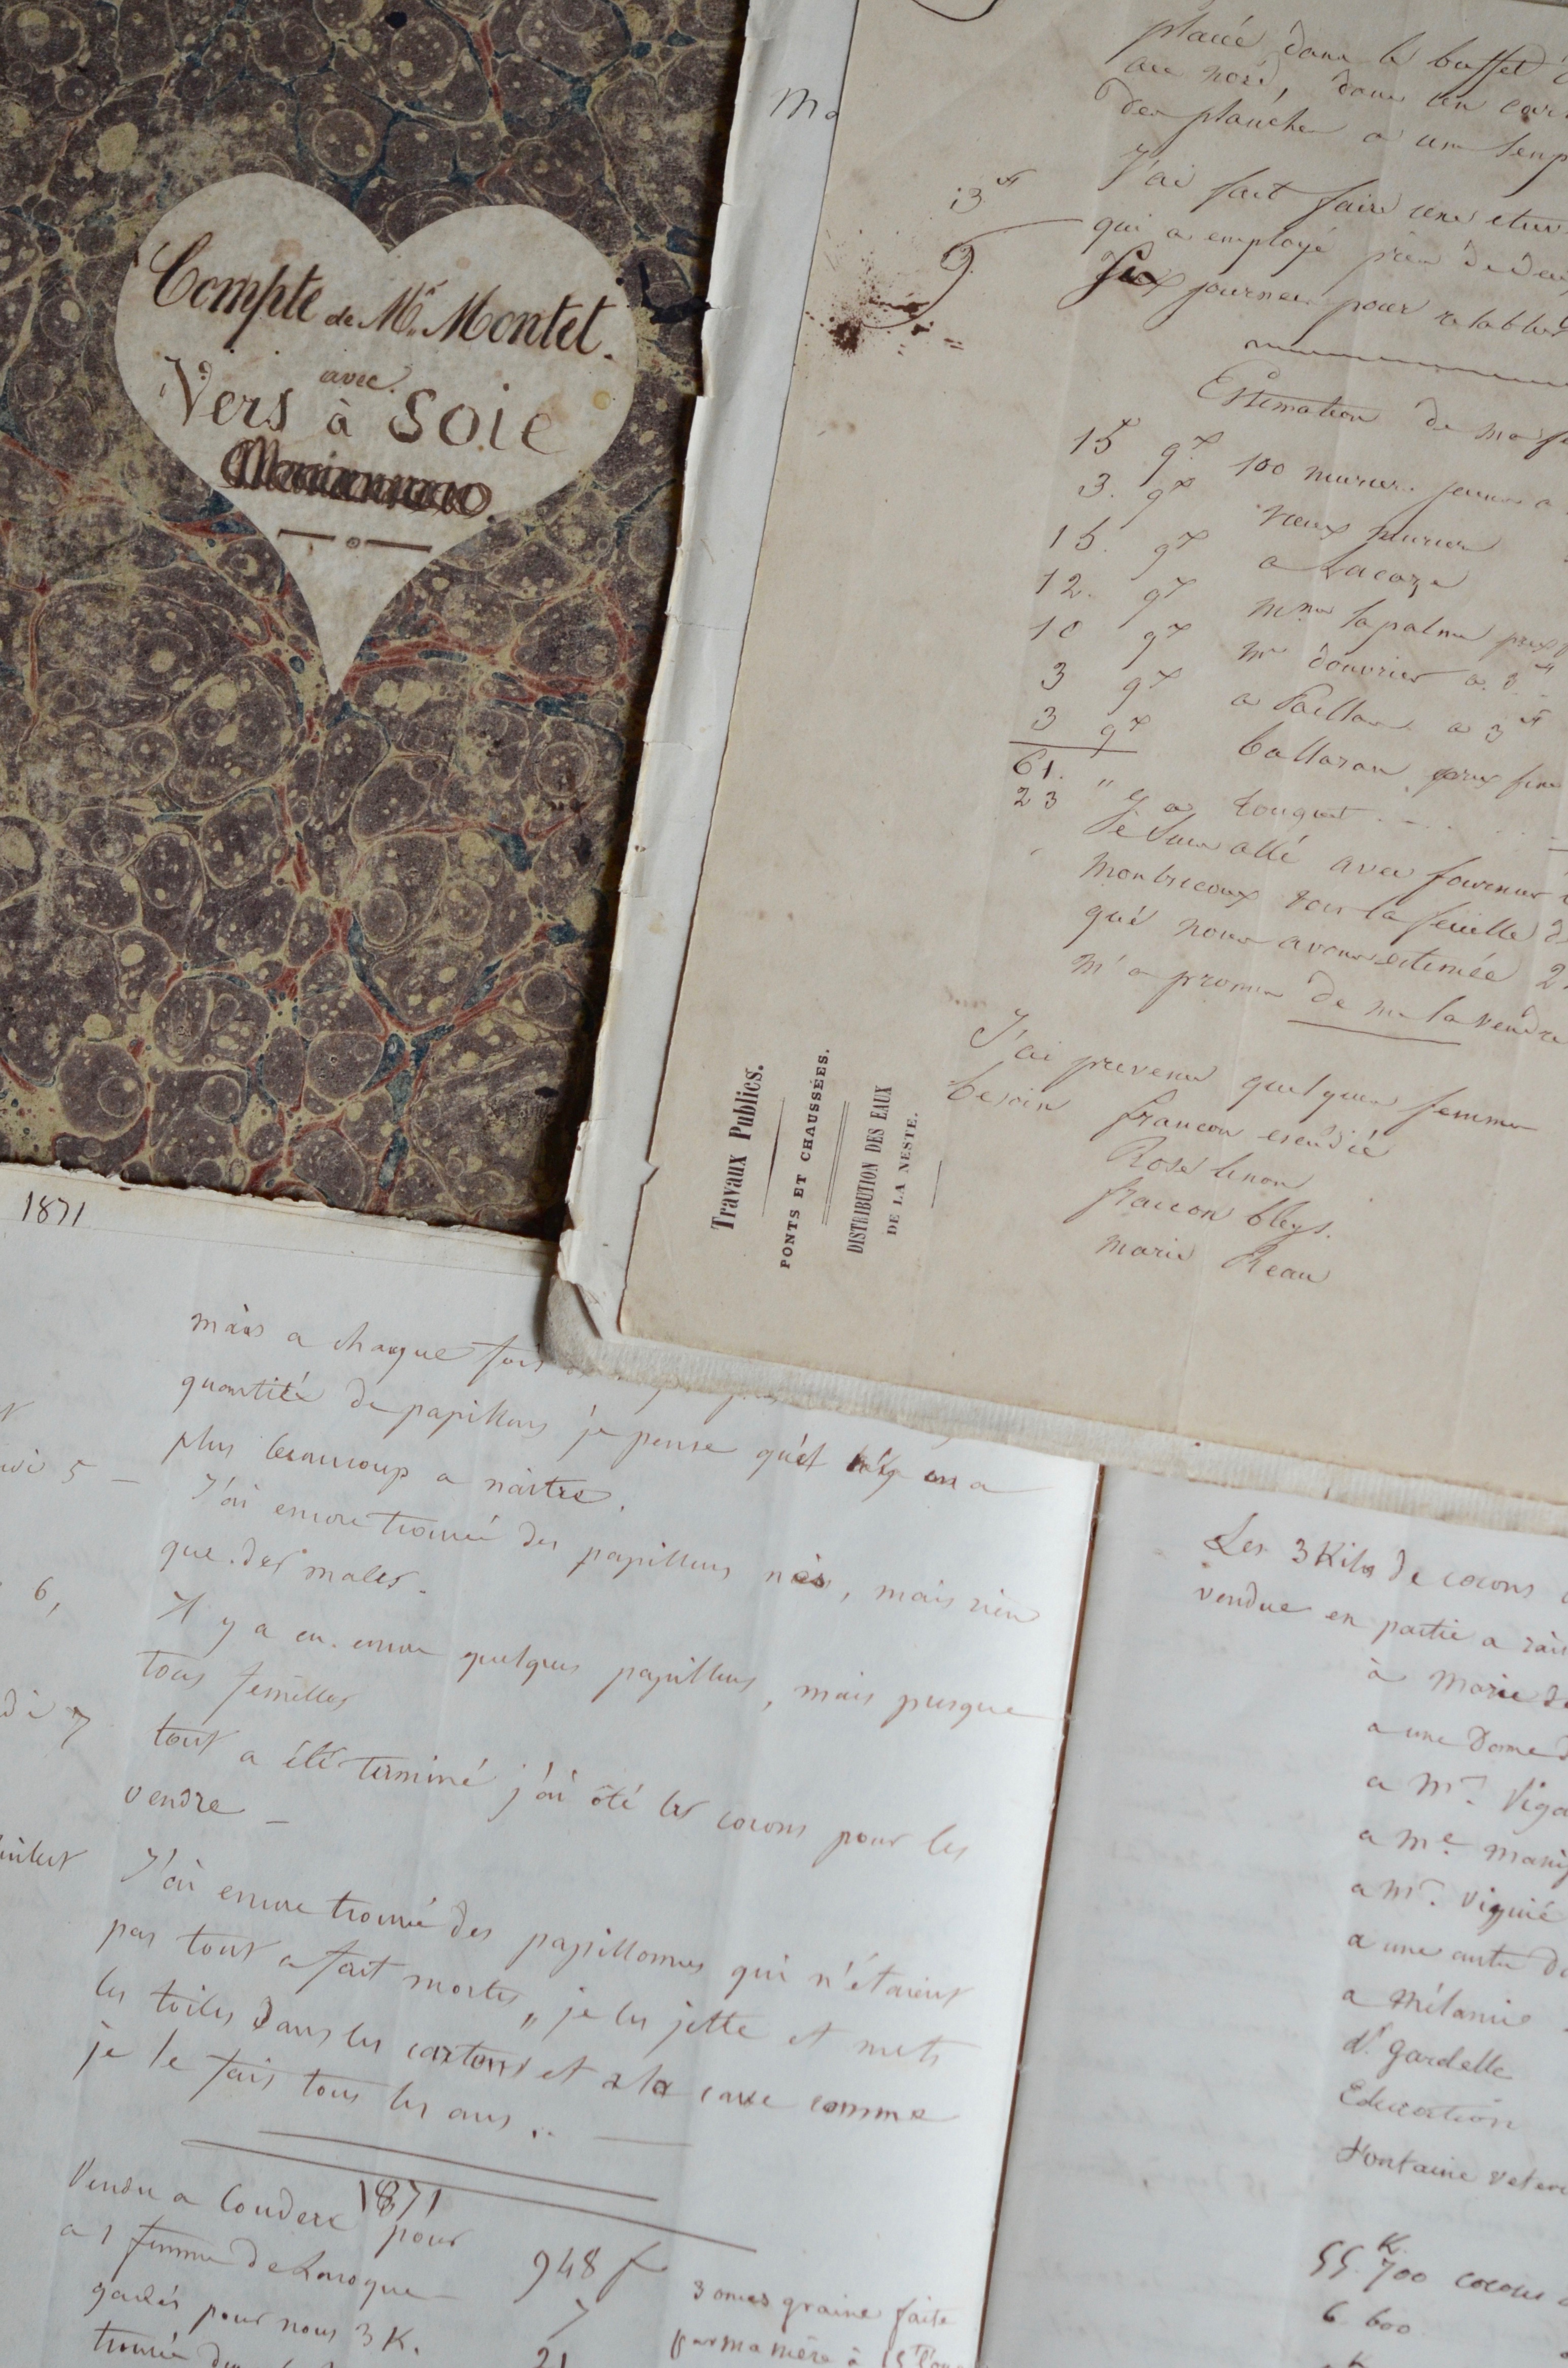 Compte de Mr. Montet.
avec
Vers à Soie
Mo
placé dans le buffet
des planches a un
J'ai fait faire une etuv
qui a employé près de deux
Six journées pour
Estimation de ma fe
15 qx 100 muriers jeunes a
3. qx vieux muriers
15. qx a Lacaze
12. qx Mme Lapalme prix f
10 qx Mr douvrier a 3
3 qx a Paillar a 3
3 qx prix fin
61. "
23 y a touquet
Je suis allé avec fournier
Montricoux voir la feuille d
que nous avons estimée 2
m'a promis de me la vendre
J'ai prevenu quelques femmes
besoin
francon escudié
Rose
francon bleys.
marie Reau
Travaux Publics.
PONTS ET CHAUSSÉES.
DISTRIBUTION DES EAUX
DE LA NESTE.
1871
mais a chaque fois
quantité de papillons je pense qu'il n'y en a
plus beaucoup a naitre.
5 — J'ai encore trouvé des papillons nés, mais rien
que des males.
6, Il y a eu encore quelques papillons, mais presque
tous femelles
di 7 tout a été terminé j'ai ôté les cocons pour les
vendre —
J'ai encore trouvé des papillonnes qui n'étaient
pas tout a fait mortes, je les jette et mets
les toiles dans les cartons et a la cave comme
je le fais tous les ans..
1871
Vendu a Couderc pour 948 f
a 1 femme de Laroque 7
gardés pour nous 3 K. 21
trouvé
3 onces graine faite
par ma mère à
Les 3 Kilos de cocons
vendue en partie a rais
à Marie d
a une Dame d
a Mr. Viga
a Me.
a Mr. Viguié
a une autre d
a Mélanie
d. Gardelle
Education
Fontaine veteri
55 K. 700 cocons
6 600